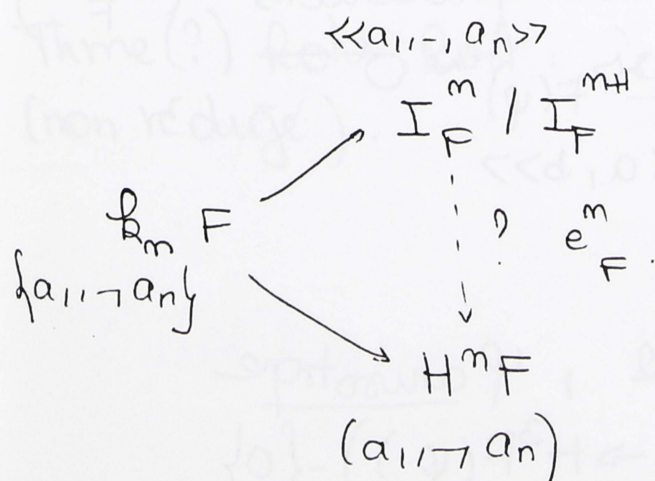 <<a₁,-,aₙ>>
I_F^n / I_F^{n+1}
kₙ F
{a₁,-,aₙ}
? e_F^n.
HⁿF
(a₁,-,aₙ)